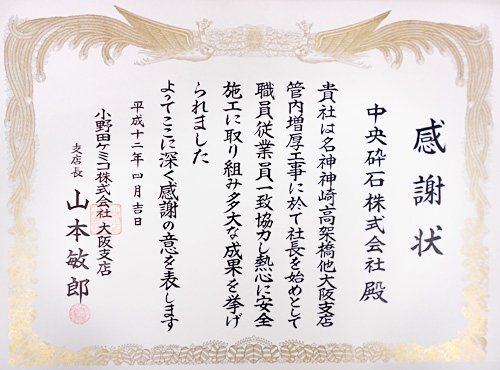 感謝状
中央砕石株式会社殿
貴社は名神神崎高架橋他大阪支店
管内増厚工事に於て社長を始めとして
職員従業員一致協力し熱心に安全
施工に取り組み多大な成果を挙げ
られました
よってここに深く感謝の意を表します
平成十二年四月吉日
小野田ケミコ株式会社 大阪支店
支店長 山本敏郎